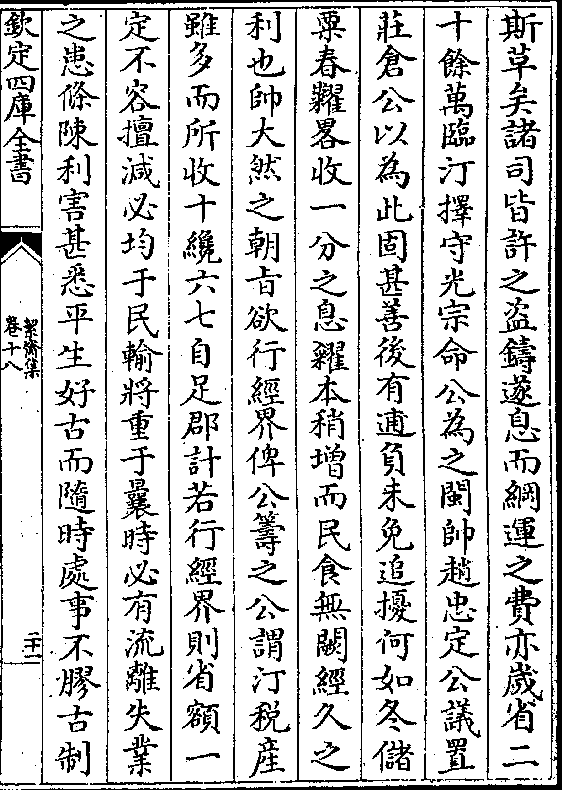 斯草矣諸司皆許之盜鑄遂息而綱運之費亦歲省二
十餘萬臨汀擇守光宗命公為之閩帥趙忠定公議置
莊倉公以為此固甚善後有逋負未免追擾何如冬儲
粟春糶畧收一分之息糴本稍增而民食無闕經久之
利也帥大然之朝㫖欲行經界俾公籌之公謂汀税産
雖多而所收十纔六七自足郡計若行經界則省額一
定不容擅減必均于民輸將重于曩時必有流離失業
之患條陳利害甚悉平生好古而隨時處事不膠古制
欽定四庫全書
絜齋集
卷十八
二十一